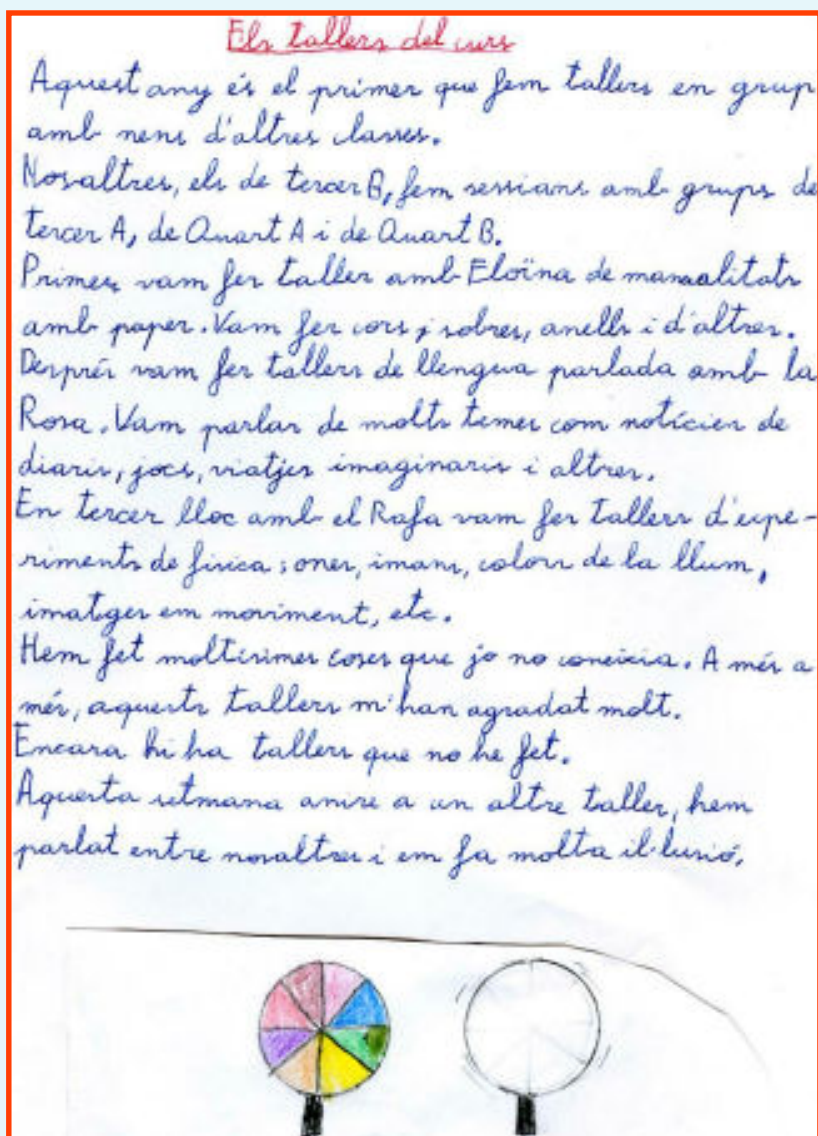 Els tallers del curs
Aquest any és el primer que fem tallers en grup
amb nens d'altres classes.
Nosaltres, els de tercer B, fem sessions amb grups de
tercer A, de Quart A i de Quart B.
Primer, vam fer taller amb Eloïna de manualitats
amb paper. Vam fer cors, sobres, anells i d'altres.
Després vam fer tallers de llengua parlada amb la
Rosa. Vam parlar de molts temes com notícies de
diaris, jocs, viatjes imaginaris i altres.
En tercer lloc amb el Rafa vam fer tallers d'expe-
riments de física; ones, imans, colors de la llum,
imatges em moviment, etc.
Hem fet moltíssimes coses que jo no coneixia. A més a
més, aquests tallers m'han agradat molt.
Encara hi ha tallers que no he fet.
Aquesta setmana anire a un altre taller, hem
parlat entre nosaltres i em fa molta il·lusió.